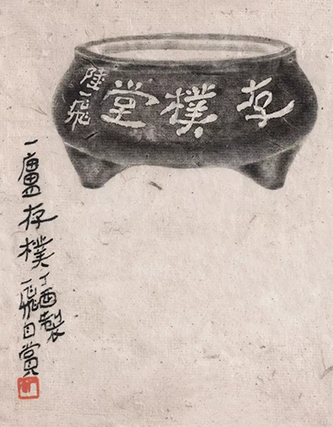 存樸堂
陸一飛
一盧存樸
丁酉製
一飛自賞